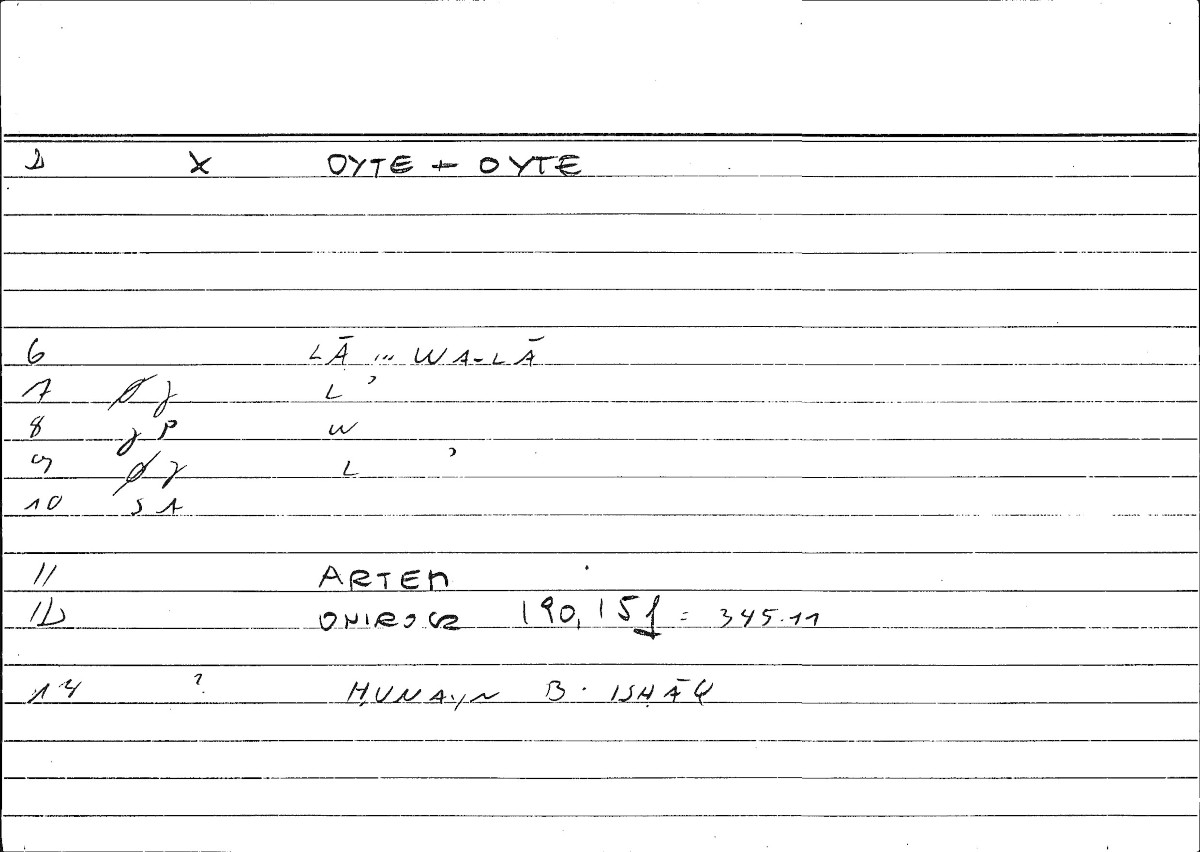 2 X OYTE + OYTE
6 LĀ ... WA-LĀ
7 Ø J L ʾ
8 J P W
9 Ø J L ʾ
10 S A
11 ARTEM
12 ONIROCR 190,15f = 345.11
14 ? ḤUNAYN B. ISḤĀQ